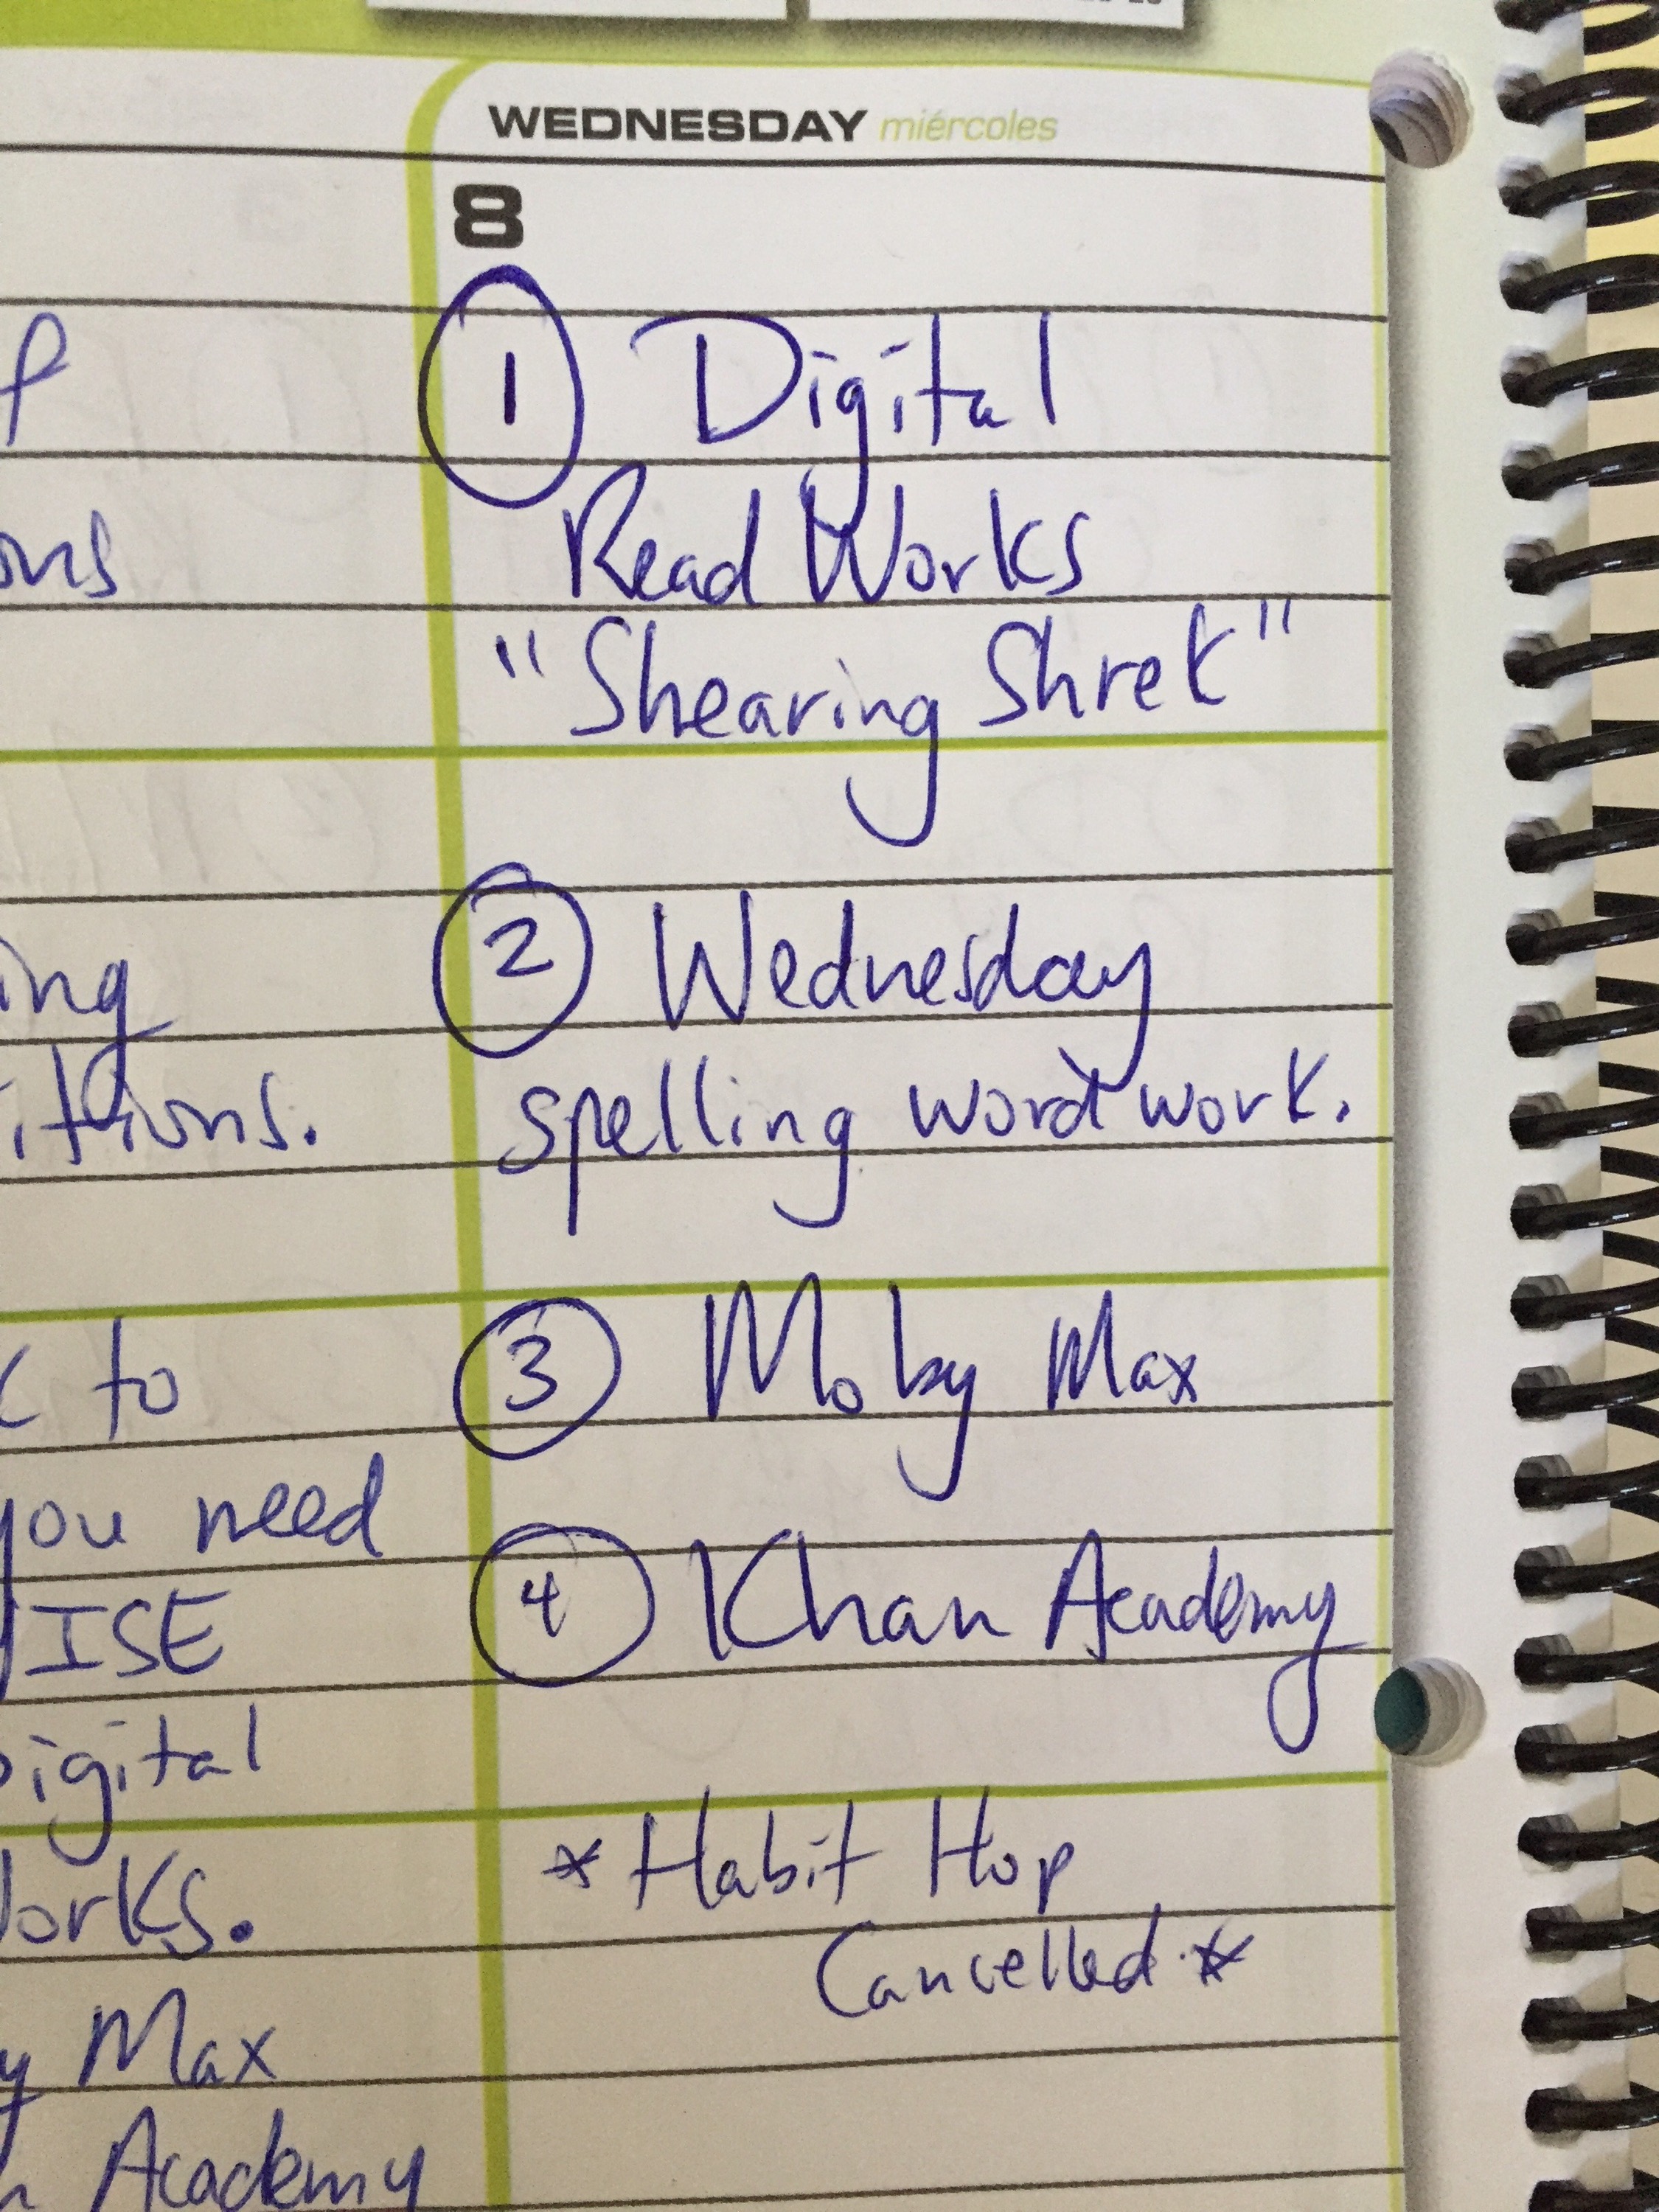 WEDNESDAY miércoles
8
1 Digital
Read Works
"Shearing Shrek"
2 Wednesday
spelling word work.
3 Moby Max
4 Khan Academy
* Habit Hop
Cancelled *
to
you need
ISE
Digital
Max
Academy